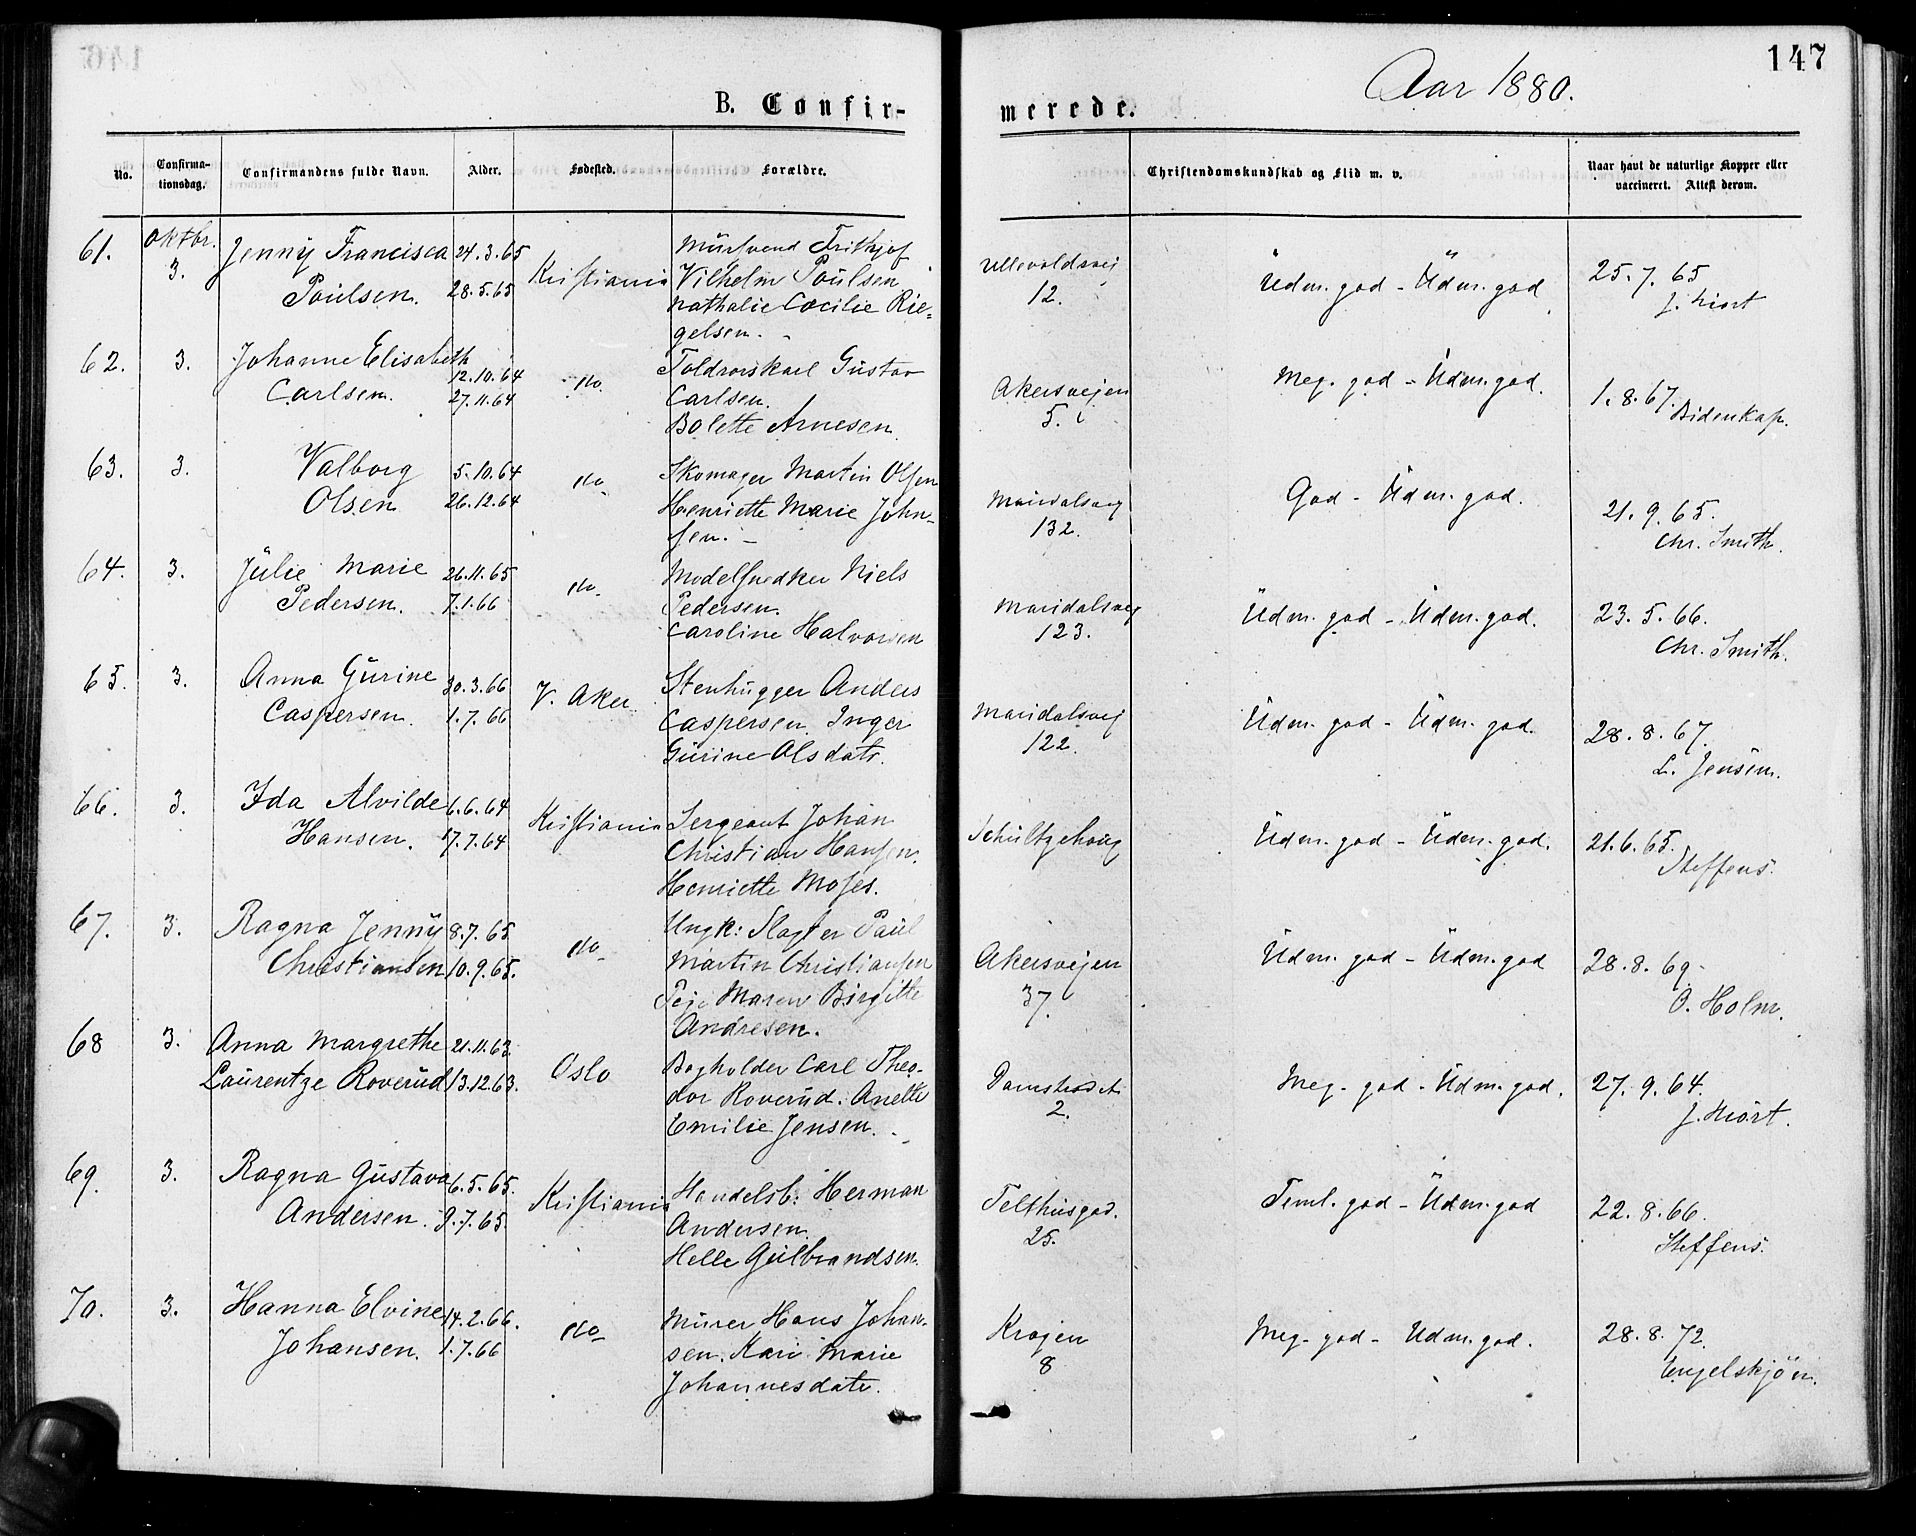 147
Aar 1880.
B. Confir-
merede.
No. Confirma-tionsdag. Confirmandens fulde Navn. Alder. Fødested. Forældre. Christendomskundskab og Flid m. v. Naar havt de naturlige Kopper eller vaccineret. Attest derom.
61. Oktbr. Jenny Francisca 24.3.65 Mursvend Frithjof
3. Poulsen. 28.5.65 Kristiania Vilhelm Poulsen
Nathalie Cæcilie Rie=
gelsen.
Ullevoldsvej 12. Udm. god - Udm. god 25.7.65 J. Hiort
62. 3. Johanne Elisabeth 12.10.64 do Toldrorskarl Gustav
Carlsen. 27.11.64 Carlsen.
Bolette Arnesen
Akersvejen 5. Meg. god - Udm. god. 1.8.67. Bidenkap.
63. 3. Valborg 5.10.64 do Skomager Martin Olsen
Olsen 26.12.64 Henriette Marie John-
sen.
Maridalsvej 132. God - Udm. god. 21.9.65. Chr. Smith.
64. 3. Julie Marie 26.11.65 do. Modelsnedker Niels
Pedersen. 7.1.66 Pedersen.
Caroline Halvorsen
Maridalsvej 123. Udm. god - Udm. god. 23.5.66. Chr. Smith.
65. 3. Anna Gurine 30.3.66 V. Aker Stenhugger Anders
Caspersen. 1.7.66 Caspersen. Inger
Gurine Olsdatr.
Maridalsvej 122. Udm. god - Udm. god. 28.8.67. L. Jensen.
66. 3. Ida Alvilde 6.6.64 Kristiania Sergeant Johan
Hansen. 17.7.64 Christian Hansen.
Henriette Moses.
Schultzehoug Udm. god - Udm. god. 21.6.65. Steffens.
67. 3. Ragna Jenny 8.7.65 do Ungk: Slagter Paul
Christiansen 10.9.65. Martin Christiansen
Pige Maren Birgitte
Andresen.
Akersvejen 37. Udm. god - Udm. god 28.8.69. O. Holm.
68 3. Anna Margrethe 21.11.63. Oslo Bogholder Carl Theo-
Laurentze Roverud 13.12.63. dor Roverud. Anette
Emilie Jensen.
Damstrædet 2. Meg. god - Udm. god. 27.9.64. J. Hiort.
69. 3. Ragna Gustava 6.5.65. Kristiania Handelsb: Herman
Andersen. 9.7.65. Andersen.
Helle Gulbrandsen.
Telthusgad. 25. Teml. god - Udm. god 22.8.66. Steffens.
70. 3. Hanna Elvine 14.2.66. do Murer Hans Johan-
Johansen. 1.7.66 sen. Kari Marie
Johannesdatr.
Krogen 8 Meg. god - Udm. god. 28.8.72. Engelskjøn.